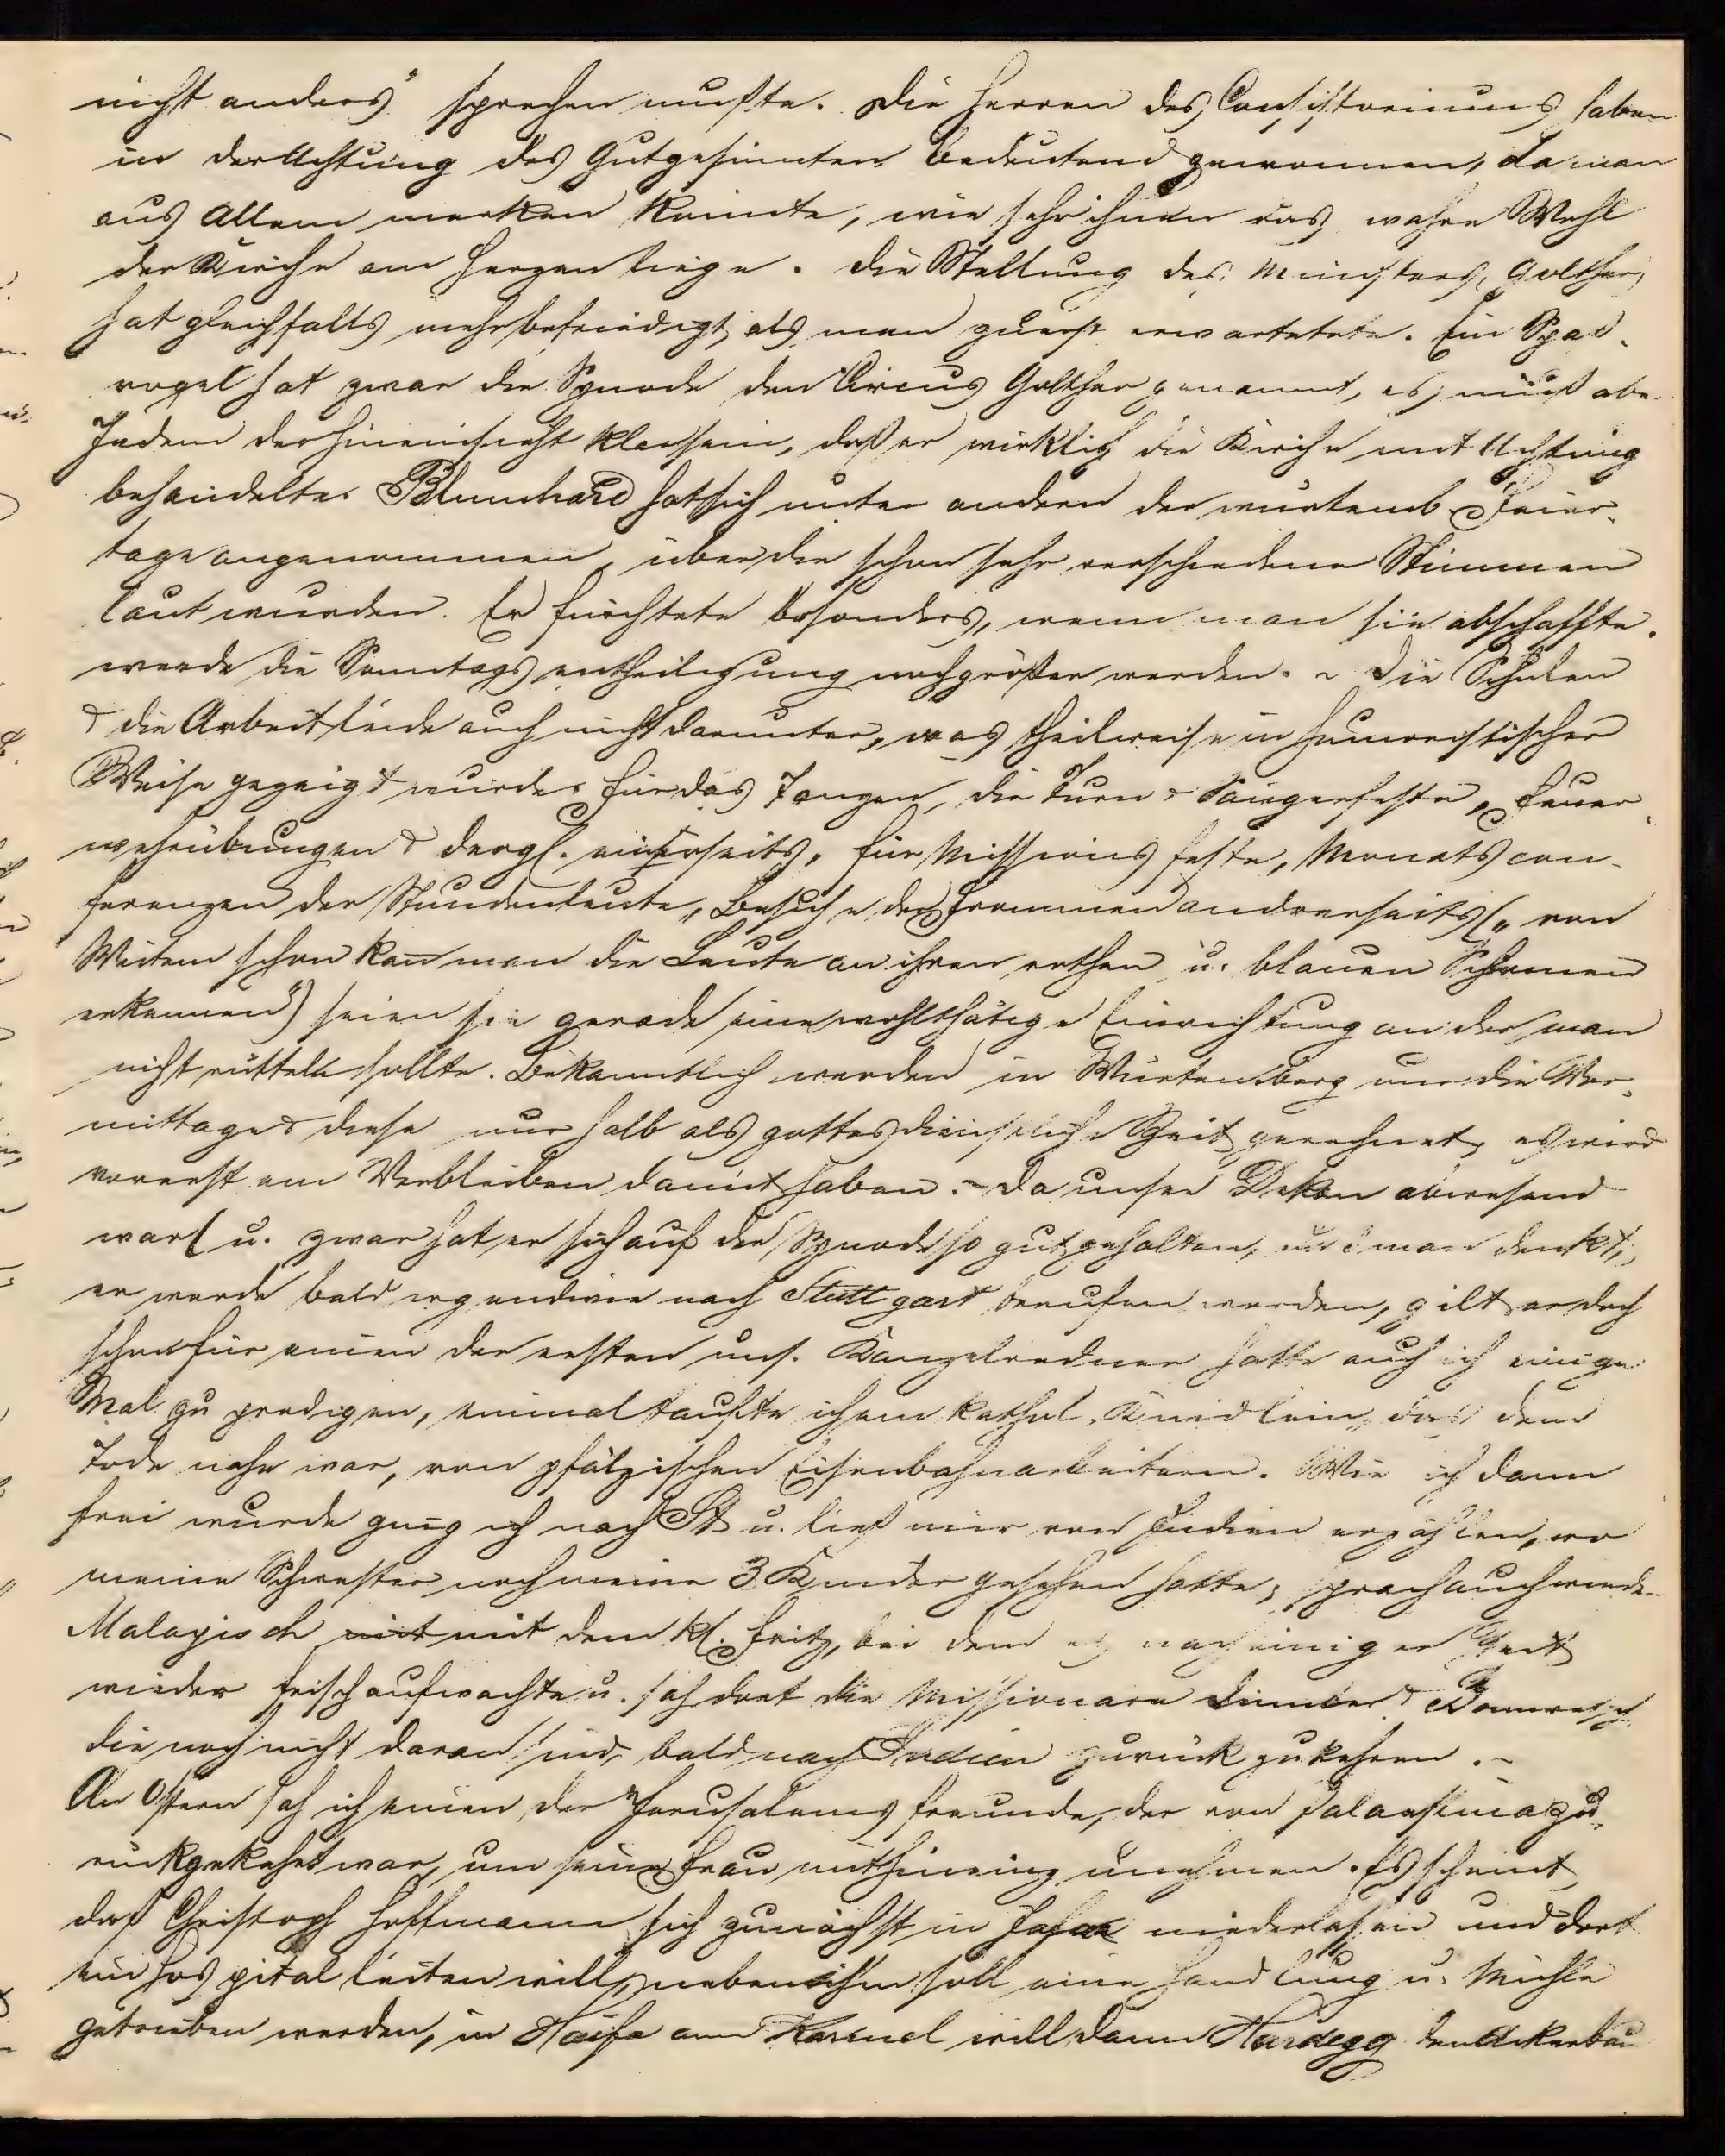 nicht anders" sprechen mußte. Die Herren des Consistoriums haben
in der Achtung des Gutgesinnten bedeutend gewonnen, da man
aus Allem merken konnte, wie sehr ihnen das wahre Wohl
der Kirche am Herzen liege. Die Stellung des Ministers, Golther,
hat gleichfalls mehr befriedigt, als man zuerst erwartetete. Ein Spas-
vogel hat zwar die Synode den Circus Golther genannt, es muß abe
Jedem der hineinsieht klar sein, daß er wirklich die Kirche mit Achtung
behandelte. Blumhard hat sich unter andern der würtemb. Feier-
tage angenommen, über die schon sehr verschiedene Stimmen
laut wurden. Er fürchtete besonders, wenn man sie abschaffte,
werde die Sonntagsentheiligung noch größer werden. - Die Schulen
& die Arbeit leide auch nicht darunter, was theilweise in humoristischer
Weise gezeigt wurde. Für das Tanzen, die Turn- & Sängerfeste, Feuer-
wehrübungen & dergl. einerseits, für Missionsfeste, Monatscon-
ferenzen der Stundenleute, Besuche der Frommen andrerseits („von
Weitem schon kan man die Leute an ihren rothen u. blauen Schirmen
erkennen") seien sie gerade eine wohlthätige Einrichtung an der man
nicht rütteln sollte. Bekanntlich werden in Würtemberg nur die Vor-
mittage & diese nur halb als gottesdienstliche Zeit gerechnet, es wird
vorerst ein Verbleiben damit haben. - Da unser Dekan abwesend
war (u. zwar hat er sich auf der Synode so gut gehalten, daß man denkt,
er werde bald irgendwie nach Stuttgart berufen werden, gilt er doch
schon für einen der ersten uns. Kanzelredner hatte auch ich einige
Mal zu predigen, einmal taufte ich ein kathol. Kindlein, das dem
Tode nahe war, von pfälzischen Eisenbahnarbeitern. Wie ich dann
frei wurde ging ich nach St u. ließ mir von Indien erzählen, wo
meine Schwester noch meine 3 Kinder gesehen hatte, sprach auch wieder
Malayisch mit mit dem kl. Fritz, bei dem es nach einiger Zeit
wieder frisch aufwachte u. sah dort die Missionare &
die noch nicht daran sind, bald nach Indien zurück zu kehren. -
An Ostern sah ich einen der Jerusalems freunde, der von Palaestina zu-
rückgekehrt war, um seine Frau mit hineinzunehmen. Es scheint
daß Christoph Hoffmann sich zunächst in Jafa niederlassen und dort
ein Hospital leiten will, neben ihm soll eine Handlung u. Mühle
getrieben werden, in Haifa am Karmel will dann Hardegg den Ackerbau